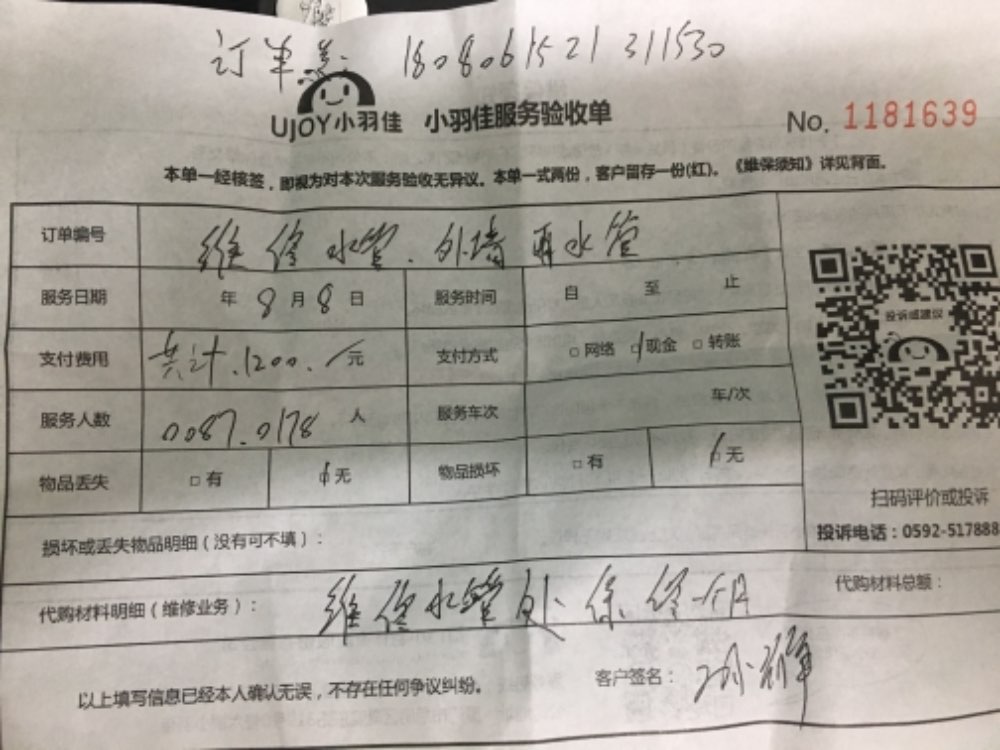 订单号: 1808061521311530
UJOY小羽佳 小羽佳服务验收单
No. 1181639
本单一经核签，即视为对本次服务验收无异议。本单一式两份，客户留存一份(红)。《维保须知》详见背面。
订单编号 维修水管.外墙 水管
服务日期 年 8 月 8 日 服务时间 自 至 止
支付费用 共计.1200. 元 支付方式 □ 网络 □ 现金 □ 转账
服务人数 0087.0178 人 服务车次 车/次
物品丢失 □ 有 □ 无 物品损坏 □ 有 □ 无
投诉或建议
扫码评价或投诉
投诉电话：0592-517888
损坏或丢失物品明细（没有可不填）：
代购材料明细（维修业务）： 维修水管处.保修一个月
代购材料总额：
以上填写信息已经本人确认无误，不存在任何争议纠纷。
客户签名：